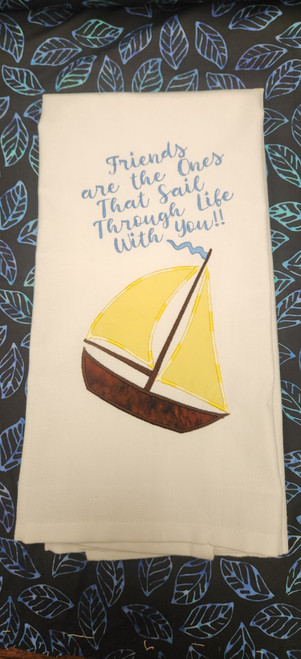 Friends
are the Ones
That Sail
Through Life
With You!!